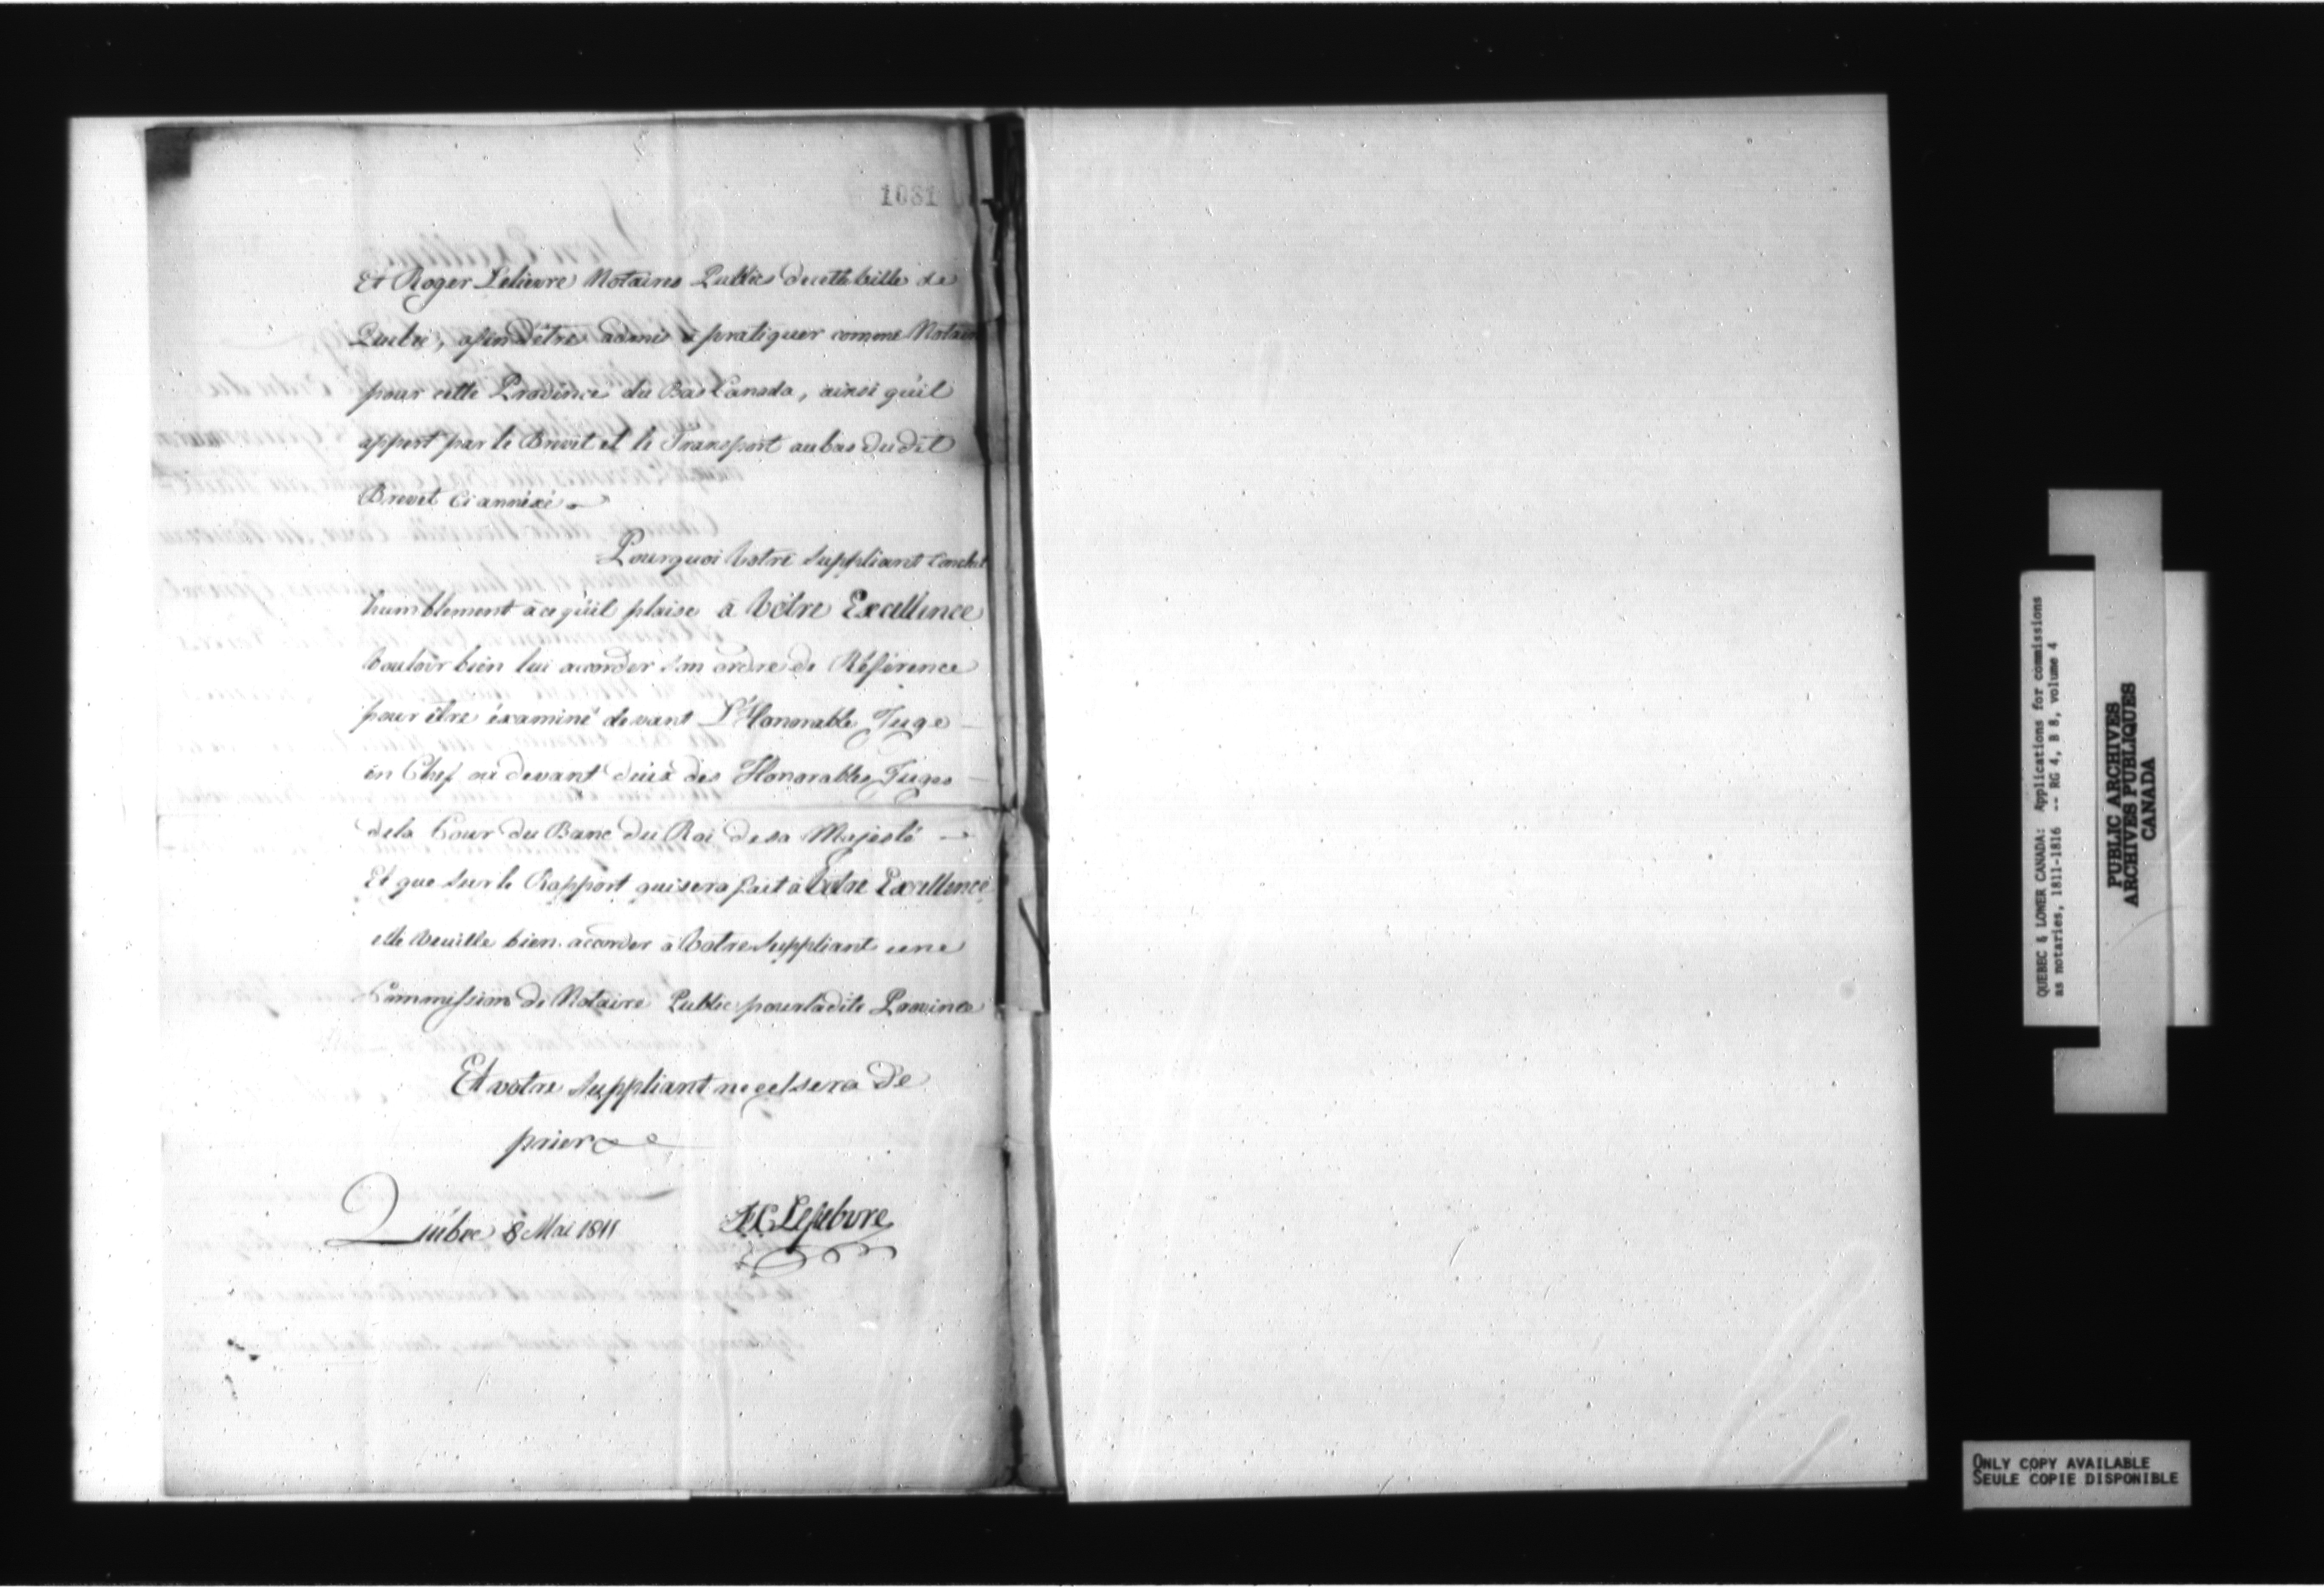 1031
Et Roger Lelievre Notaires Publics decette Ville de
Quebec, afin D'être admis à pratiquer comme Notaire
pour cette Province du Bas Canada, ainsi qu'il
appert par le Brevet et le Transport au bas du dit
Brevet Ci annéxé
Pourquoi Votre Suppliant Conclut
humblement à cequ'il plaise à Vôtre Excellence
Vouloir bien lui accorder Son ordre de Référence
pour être éxaminé devant L'Honorable Juge
en Chef ou devant deux des Honorables Juges
dela Cour du Banc du Roi de sa Majesté
Et que Sur le Rapport qui sera fait à Votre Excellence
elle Veuille bien accorder à Votre Suppliant une
Commission de Notaire Public pour ladite Province
Et votre Suppliant ne cessera De
prier
Québec 8 Mai 1811
Lefebvre
QUEBEC & LOWER CANADA: Applications for commissions
as notaries, 1811-1816 -- RG 4, B 8, volume 4
PUBLIC ARCHIVES
ARCHIVES PUBLIQUES
CANADA
ONLY COPY AVAILABLE
SEULE COPIE DISPONIBLE